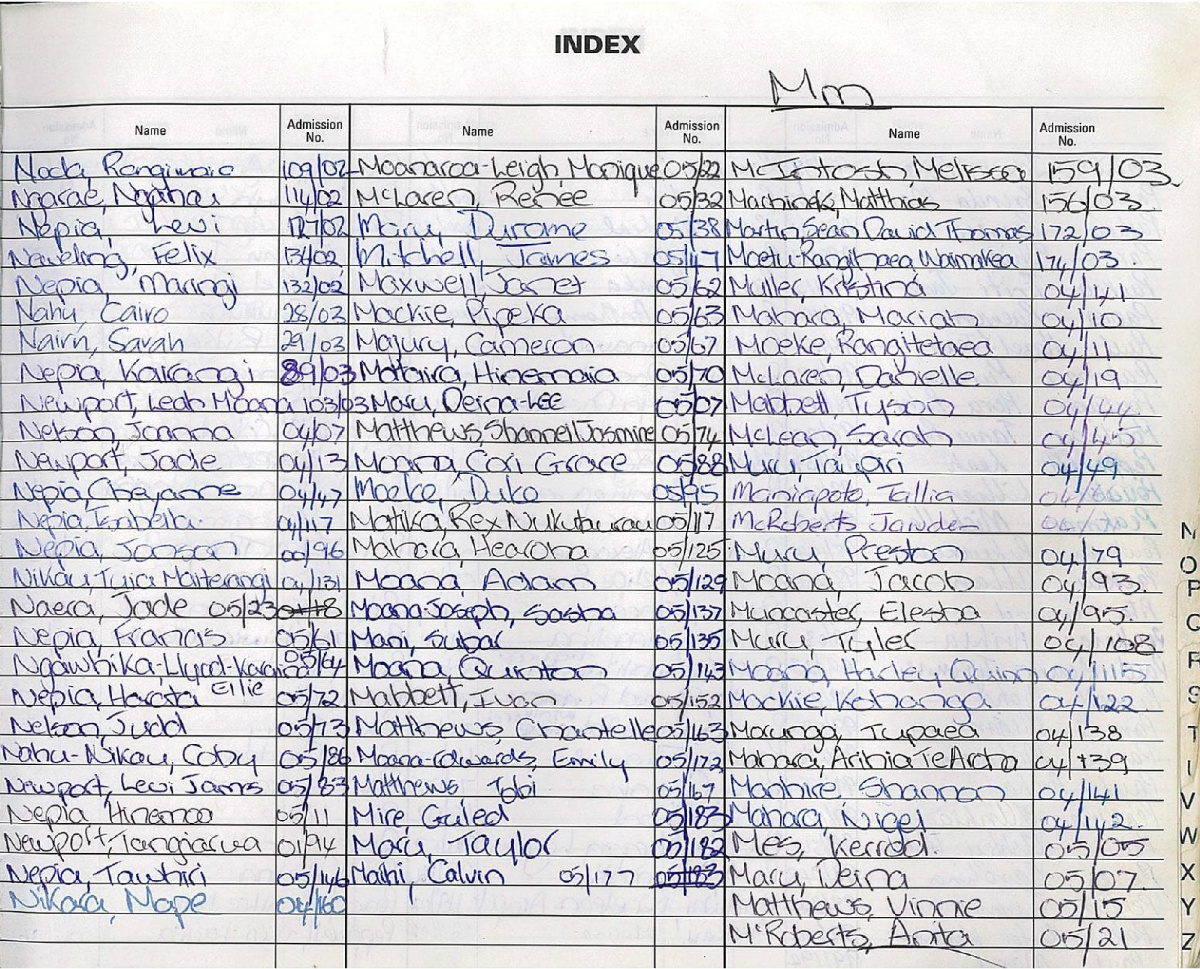 INDEX
Mm
Name Admission No. Name Admission No. Name Admission No.
109/02 Moanaroa-Leigh, Monique 05/22 McIntosh, Melissa 159/03
Ngarae, Ngahau 114/02 McLaren, Renée 05/32 Machinek, Matthias 156/03
Nepia, Levi 127/02 Maru, Durome 05/38 Martin Sean David Thomas 172/03
Neveling, Felix 131/02 Mitchell, James 05/47 Moetu-Rangihaea, Waimakea 174/03
Nepia, Maringi 132/02 Maxwell, Janet 05/62 Muller, Kristina 04/121
Nahu, Cairo 28/03 Mackie, Pipeka 05/63 Mahara, Mariah 04/10
Nairn, Sarah 29/03 Majury, Cameron 05/67 Moeke, Rangitetaea 04/11
Nepia, Kairangi 89/03 Mataira, Hinemaia 05/70 McLaren, Danielle 04/19
Newport, Leah Moana 103/03 Maru, Deina-Lee 05/07 Mabbett, Tyson 04/44
Nelson, Joanna 04/07 Matthews, Shannell Jasmine 05/74 McLean, Sarah 04/45
Newport, Jade 04/13 Moana, Cori Grace 05/88 Muru, Taipari 04/49
Nepia, Cheyanne 04/47 Moeke, Duke 05/95 Maniapoto, Tallia
Nepia, Isabella 04/117 Matika, Rex Nukuturau 05/117 McRoberts Jayden
Nepia, 96 Mahara, Hearona 05/125 Muru, Preston 04/79
Nikau, Tuira Maiterangi 04/131 Moana, Adam 05/129 Moana, Jacob 04/93
Naera, Jade 05/23 Moana-Joseph, Sasha 05/137 Muncaster, Elesha 04/95
Nepia, Francis 05/61 Mani, Subar 05/135 Maru, Tyler 04/108
05/64 Moana, Quinton 05/143 Moana, Harley Quinn 04/115
Nepia, Harata Ellie 05/72 Mabbett, Ivan 05/152 Mackie, Kohanga 04/122
Nelson, Judd 05/73 Matthews, Chantelle 05/163 Maunga, Tupaea 04/138
Nahu-Nikau, Coby 05/86 Moana-Edwards, Emily 05/172 Mahara, Arihia Te Aroha 04/139
Newport, Levi James 05/83 Matthews Tobi 05/167 Manhire, Shannon 04/141
Nepia Hinemoa 05/11 Mire, Guled 05/183 Mahara, Nigel 04/142
Newport, Tangiarua 01/94 Maru, Taylor 05/182 Mes, Kerrod. 05/05
Nepia, Tawhiri 05/146 Maihi, Calvin 05/177 05/183 Maru, Deina 05/07
Nikara, Mape 04/160 Matthews, Vinnie 05/15
McRoberts, Anita 05/21
N
O
P
Q
R
S
T
V
W
X
Y
Z